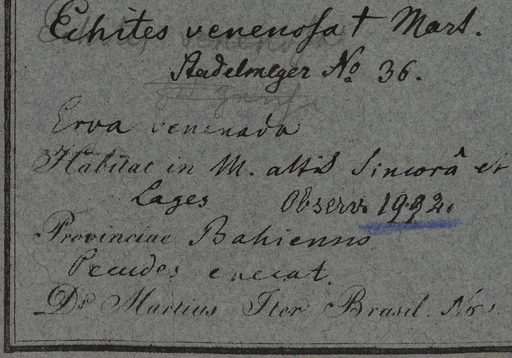 Echites venenosa † Mart.
Stadelmeyer No 36.
Erva venenada
Habitat in M. altis Sincorâ et
Lages Observ. 1992.
Provinciae Bahiensis
Pecudes enecat.
Dr Martius Iter Brasil. No